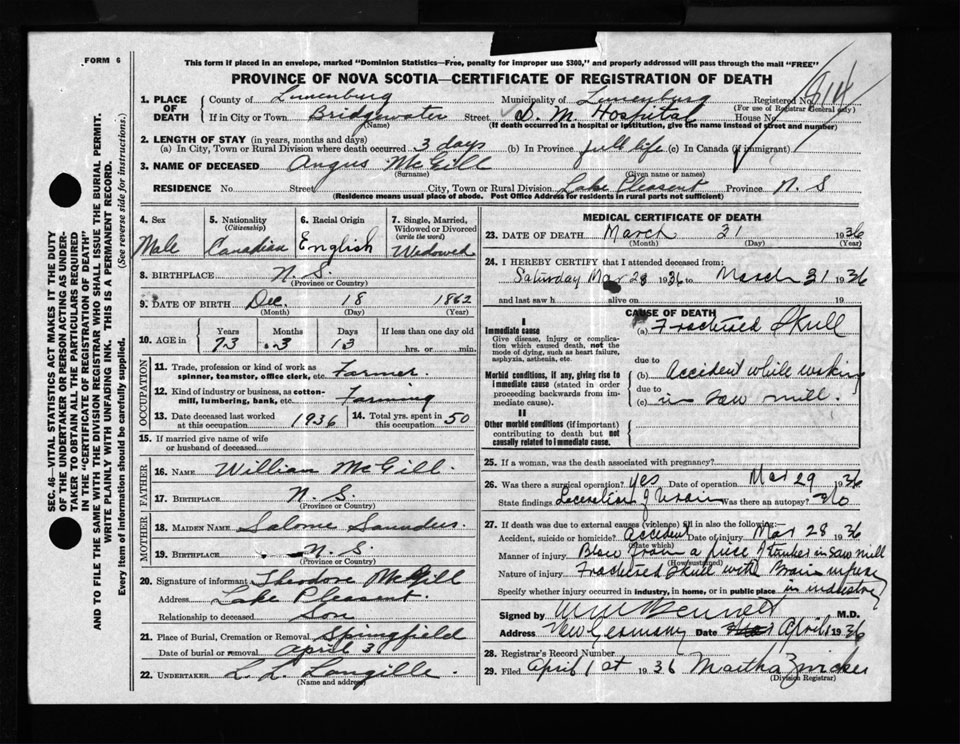 FORM 6
This form if placed in an envelope, marked "Dominion Statistics—Free, penalty for improper use $300," and properly addressed will pass through the mail "FREE"
PROVINCE OF NOVA SCOTIA—CERTIFICATE OF REGISTRATION OF DEATH
1. PLACE OF DEATH County of Lunenburg Municipality of Lunenburg Registered No.
(For use of Registrar General only)
If in City or Town Bridgewater Street D. M. Hospital House No.
(Name) (If death occurred in a hospital or institution, give the name instead of street and number)
2. LENGTH OF STAY (in years, months and days)
(a) In City, Town or Rural Division where death occurred 3 days (b) In Province full life (c) In Canada (if immigrant)
3. NAME OF DECEASED Angus McGill
(Surname) (Given name or names)
RESIDENCE No. Street City, Town or Rural Division Lake Pleasent Province N. S
(Residence means usual place of abode. Post Office Address for residents in rural parts not sufficient)
4. Sex Male
5. Nationality (Citizenship) Canadian
6. Racial Origin English
7. Single, Married, Widowed or Divorced (write the word) Widowed
8. BIRTHPLACE N. S.
(Province or Country)
9. DATE OF BIRTH Dec. 18 1862
(Month) (Day) (Year)
10. AGE in Years 73 Months 3 Days 13 If less than one day old hrs. or min.
OCCUPATION
11. Trade, profession or kind of work as spinner, teamster, office clerk, etc. Farmer.
12. Kind of industry or business, as cotton-mill, lumbering, bank, etc. Farming
13. Date deceased last worked at this occupation 1936
14. Total yrs. spent in this occupation 50
15. If married give name of wife or husband of deceased
FATHER
16. NAME William McGill.
17. BIRTHPLACE N. S.
(Province or Country)
MOTHER
18. MAIDEN NAME Salome Saunders.
19. BIRTHPLACE N. S.
(Province or Country)
20. Signature of informant Theodore McGill
Address Lake Pleasant.
Relationship to deceased Son
21. Place of Burial, Cremation or Removal Springfield
Date of burial or removal April 3
22. UNDERTAKER L. L. Langille.
(Name and address)
MEDICAL CERTIFICATE OF DEATH
23. DATE OF DEATH March 31 1936
(Month) (Day) (Year)
24. I HEREBY CERTIFY that I attended deceased from:
Saturday Mar 28 1936 to March 31 1936
and last saw h alive on 19
CAUSE OF DEATH
I
Immediate cause
Give disease, injury or complication which caused death, not the mode of dying, such as heart failure, asphyxia, asthenia, etc.
(a) Fractured Skull
due to
Morbid conditions, if any, giving rise to immediate cause (stated in order proceeding backwards from immediate cause).
(b) Accident while working
due to
(c) in Saw mill.
II
Other morbid conditions (if important) contributing to death but not causally related to immediate cause.
25. If a woman, was the death associated with pregnancy?
26. Was there a surgical operation? Yes Date of operation Mar 29 1936
State findings Laceration of Brain Was there an autopsy? No
27. If death was due to external causes (violence) fill in also the following:—
Accident, suicide or homicide? accident Date of injury Mar 28 1936
(State which)
Manner of injury Blow from a piece of timber in saw mill
(How sustained)
Nature of injury Fractured Skull with Brain injury
Specify whether injury occurred in industry, in home, or in public place in industry
Signed by M.D.
Address New Germany Date April 1 1936
28. Registrar's Record Number
29. Filed April 1st 1936 Martha Zwicker
(Division Registrar)
SEC. 46—VITAL STATISTICS ACT MAKES IT THE DUTY
OF THE UNDERTAKER OR PERSON ACTING AS UNDER-
TAKER TO OBTAIN ALL THE PARTICULARS REQUIRED
IN THE "CERTIFICATE OF REGISTRATION OF DEATH"
AND TO FILE THE SAME WITH THE DIVISION REGISTRAR WHO SHALL ISSUE THE BURIAL PERMIT.
WRITE PLAINLY WITH UNFADING INK. THIS IS A PERMANENT RECORD.
Every item of information should be carefully supplied. (See reverse side for instructions.)